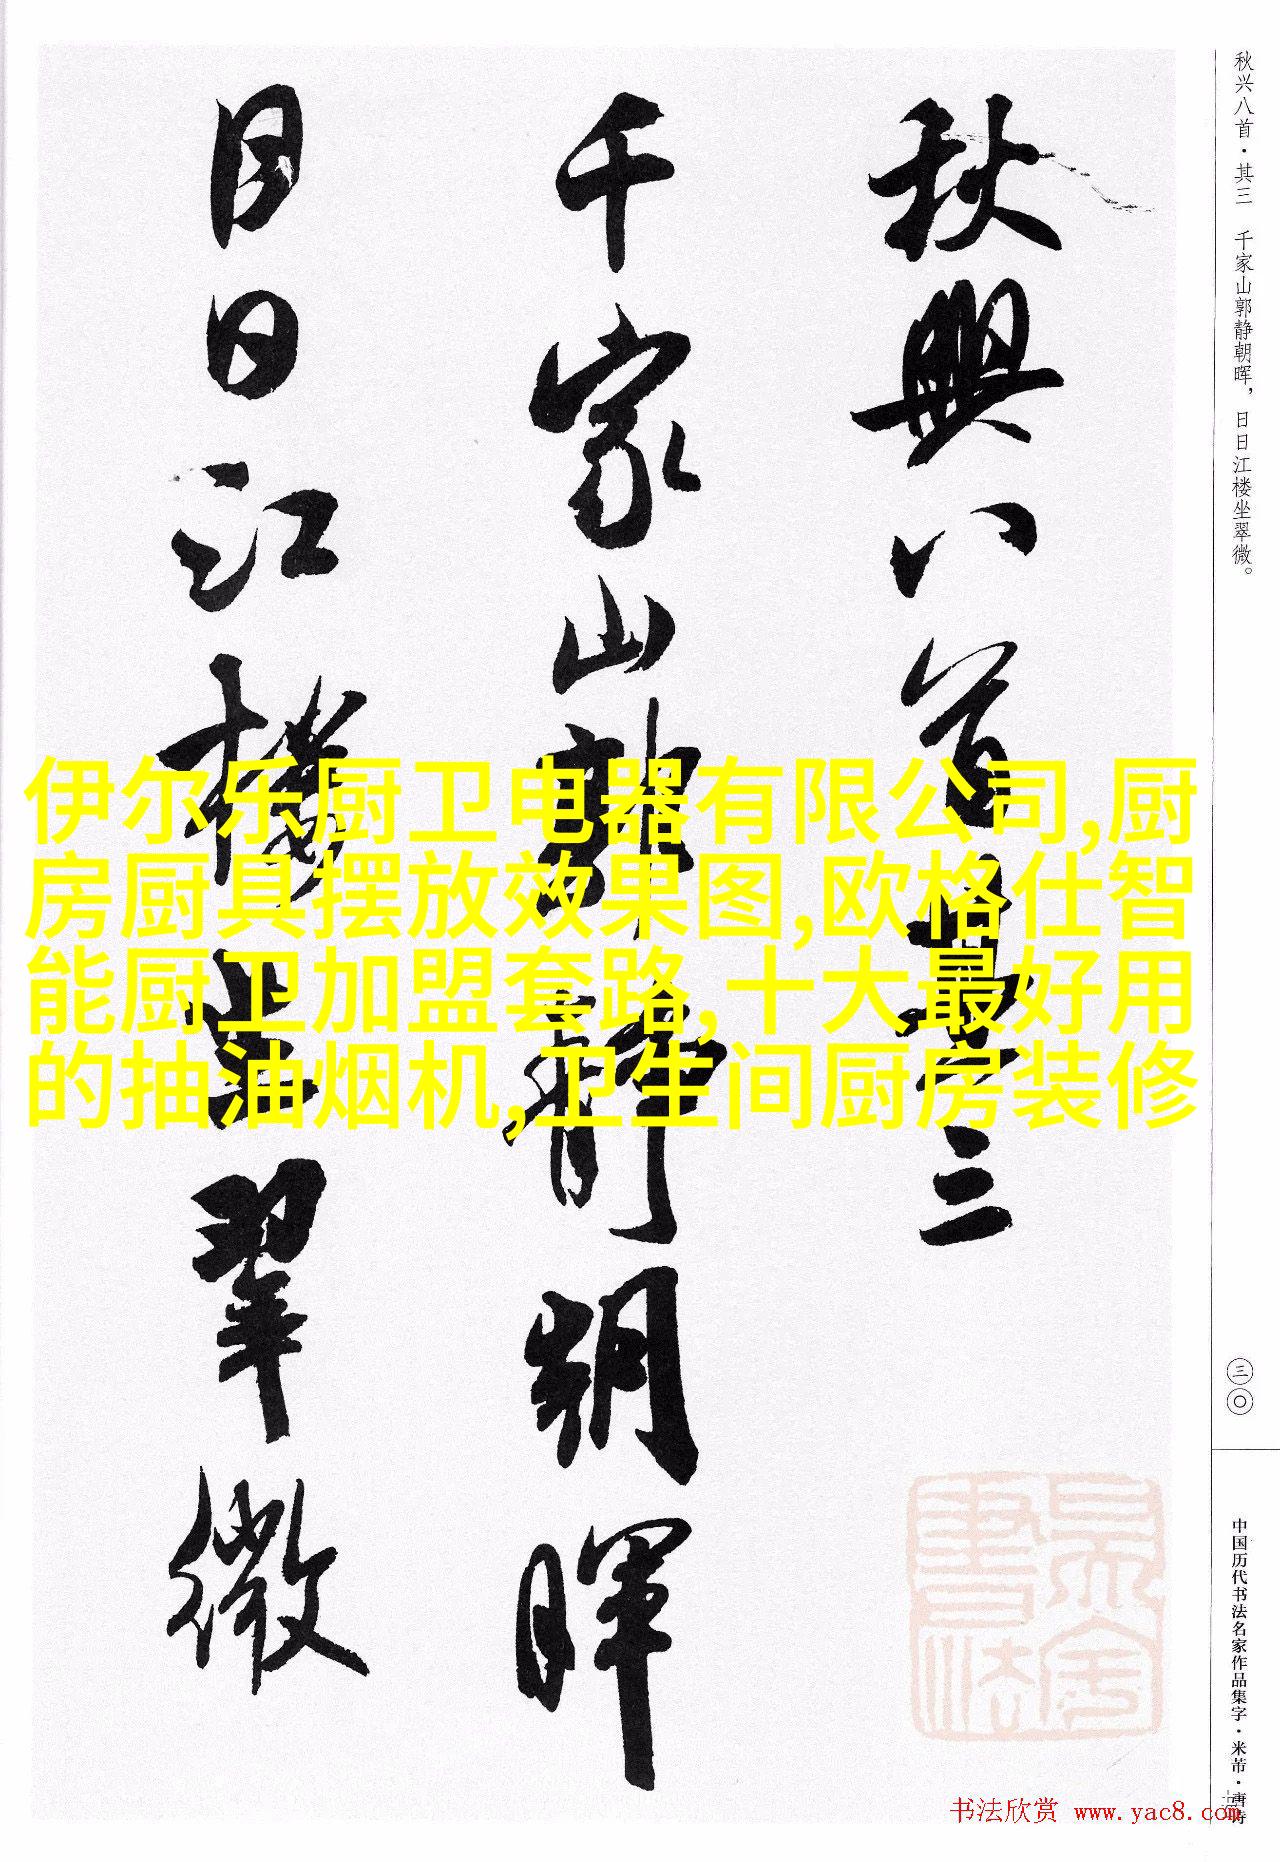 秋兴八首·其三 千家山郭静朝晖，日日江楼坐翠微。
秋興八首其三
千家山郭静朝暉
日日江樓坐翠微
伊尔乐厨卫电器有限公司,厨
房厨具摆放效果图,欧格仕智
能厨卫加盟套路,十大最好用
的抽油烟机,卫生间厨房装修
三〇
中国历代书法名家作品集字·米芾·唐诗
书法欣赏 www.yac8.com